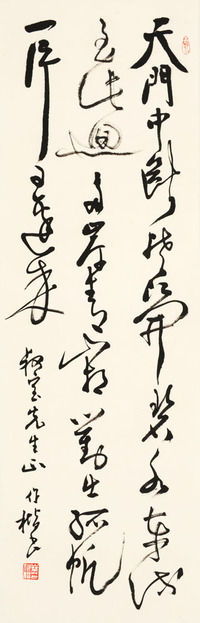 天門中斷楚江開碧水東流
至此迴兩岸青山相對出孤帆
一片日邊來
先生正 作書